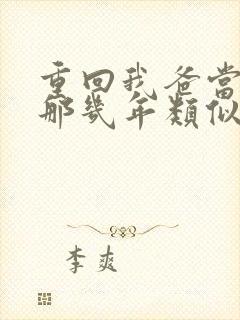 重回我爸当
那几年類似
李爽